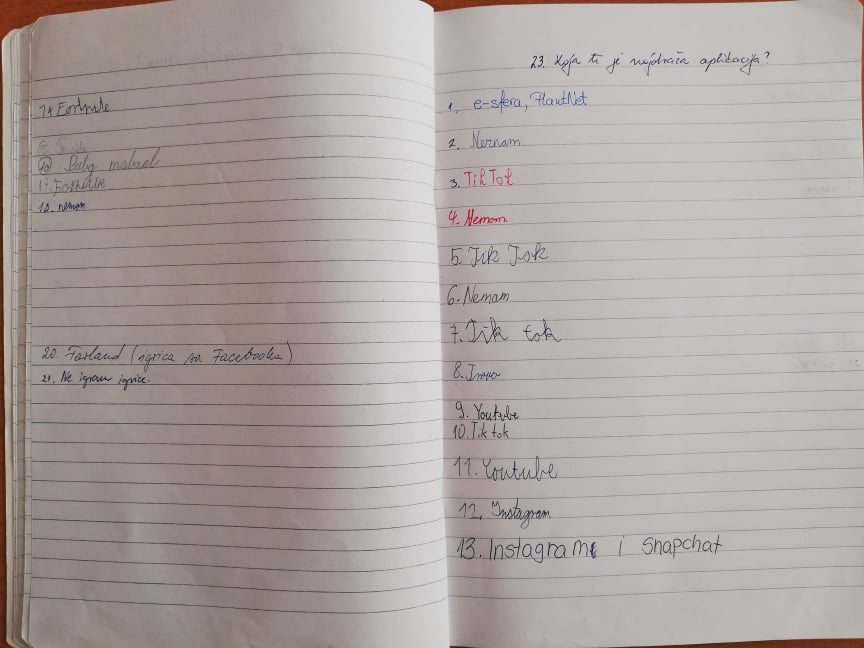 14 Fortnite
16 Pubg mobael
17. Fortnite
18. nemam
20. Farland (igrica sa Facebooka)
21. Ne igram igrice.
23. Koja ti je najdraža aplikacija?
1. e-sfera, PlantNet
2. Nemam
3. TikTok
4. Nemam.
5. Tik Tok
6. Nemam
7. Tik tok
8.
9. Youtube
10. Tik tok
11. Youtube
12. Instagram
13. Instagram i Snapchat